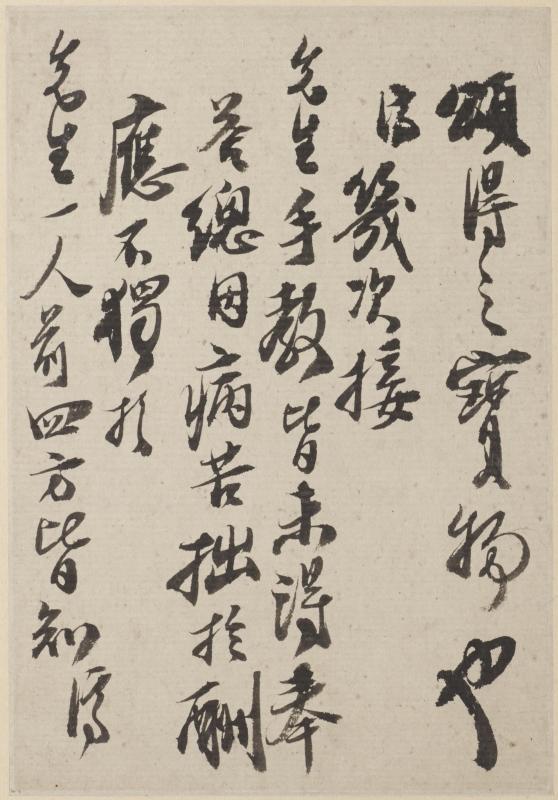 頌得之寶物也
濟幾次接
先生手教皆未得奉
荅總因病苦拙於酬
應不獨於
先生一人前四方皆知濟